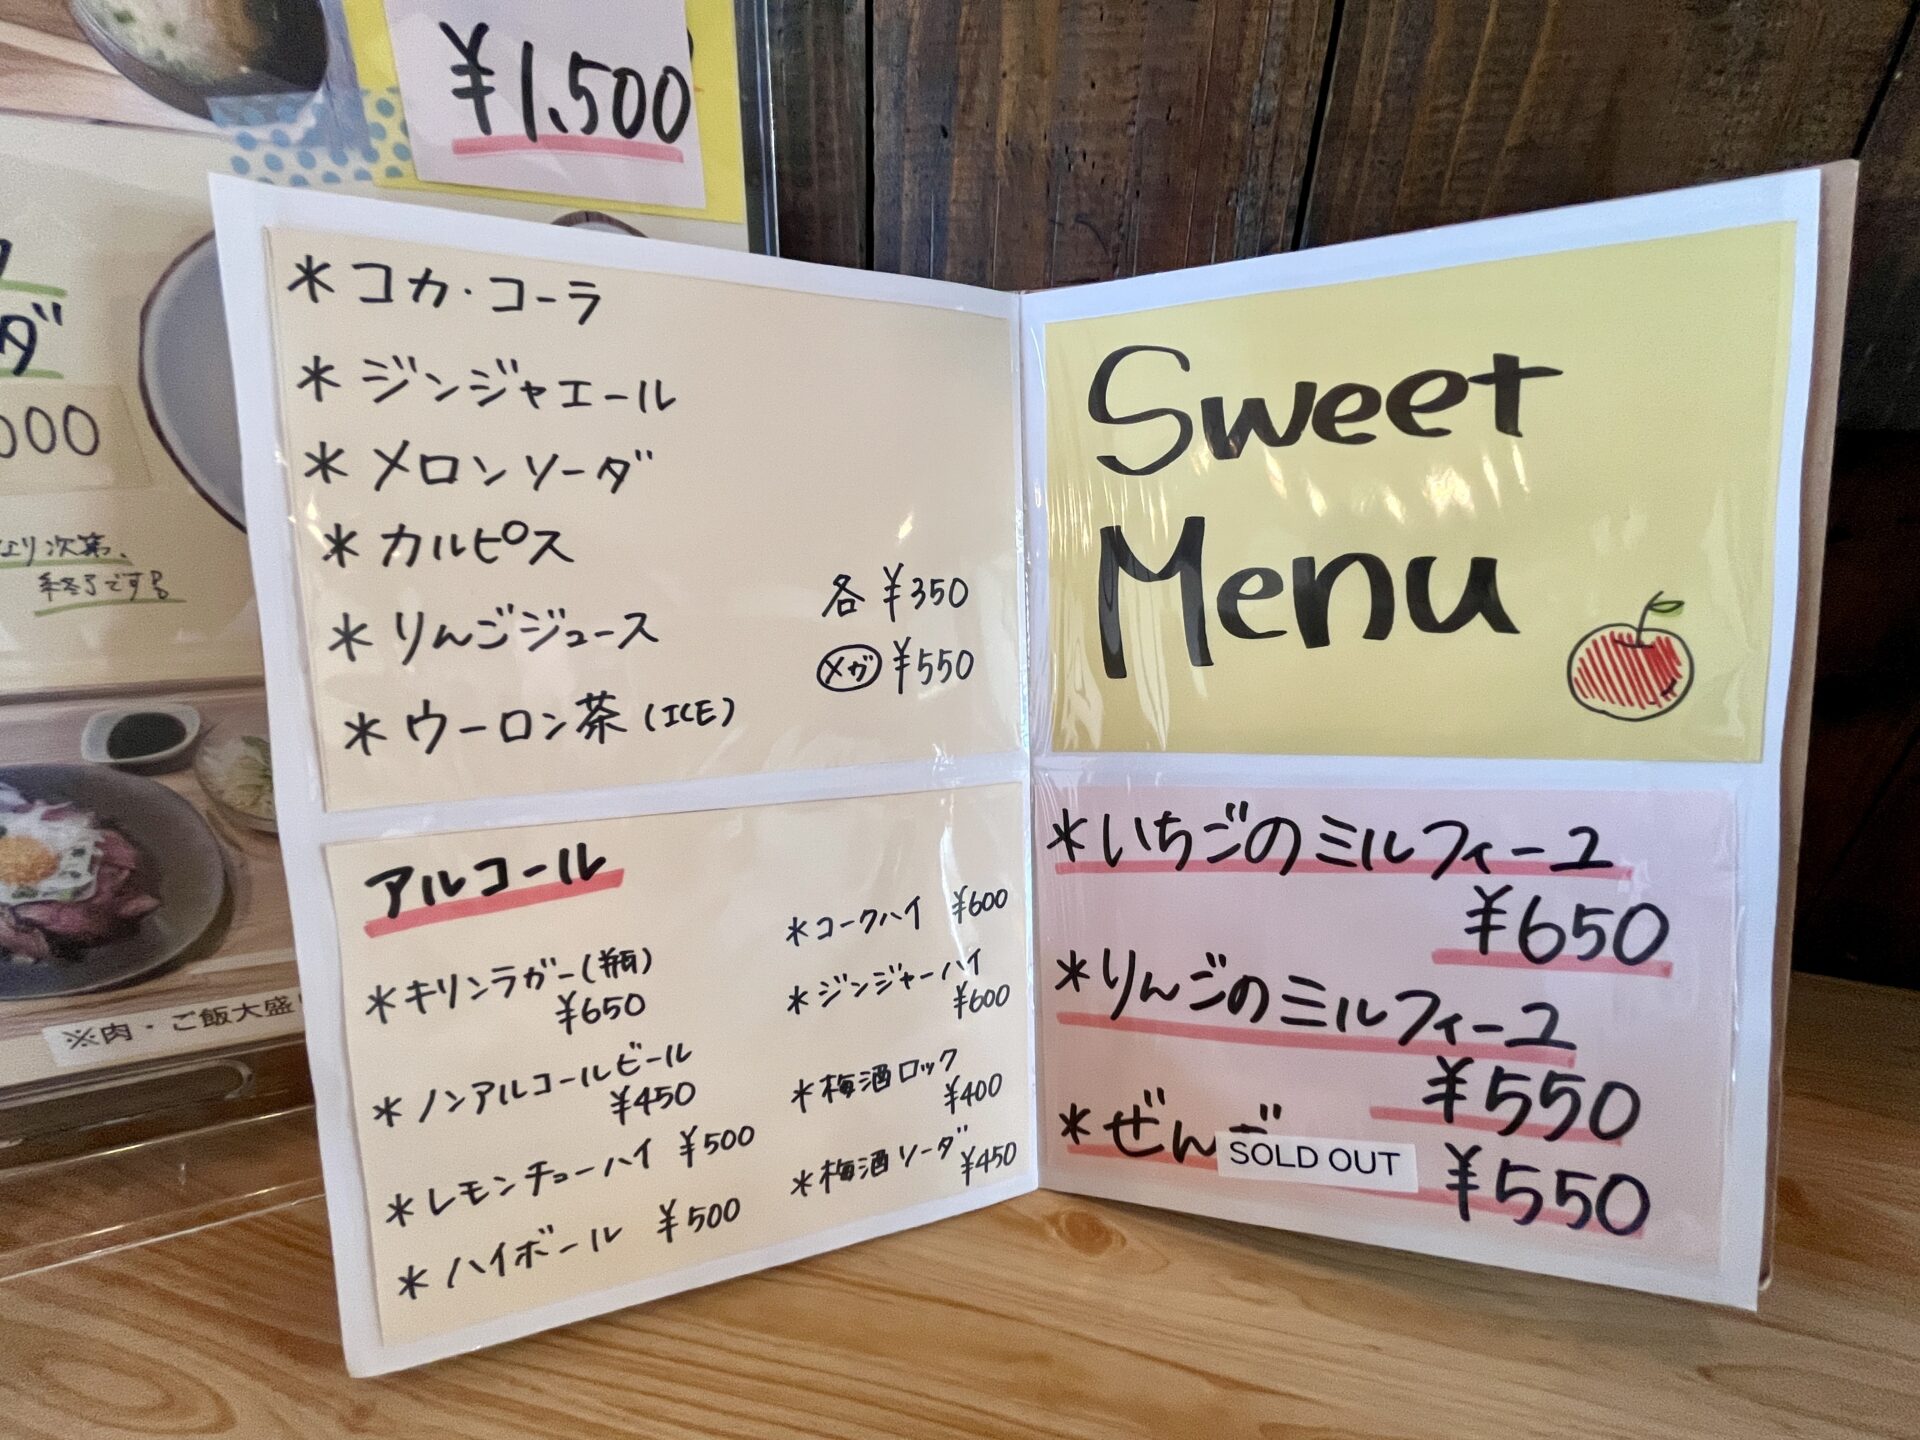 ¥1,500
ダ
000
なり次第、
終了です
※肉・ご飯大盛
＊コカ・コーラ
＊ジンジャエール
＊メロンソーダ
＊カルピス
＊りんごジュース
＊ウーロン茶(ICE)
各 ¥350
メガ ¥550
アルコール
＊キリンラガー(瓶)
¥650
＊ノンアルコールビール
¥450
＊レモンチューハイ ¥500
＊ハイボール ¥500
＊コークハイ ¥600
＊ジンジャーハイ
¥600
＊梅酒ロック
¥400
＊梅酒ソーダ
¥450
Sweet
Menu
＊いちごのミルフィーユ
¥650
＊りんごのミルフィーユ
¥550
＊ぜん
SOLD OUT
¥550